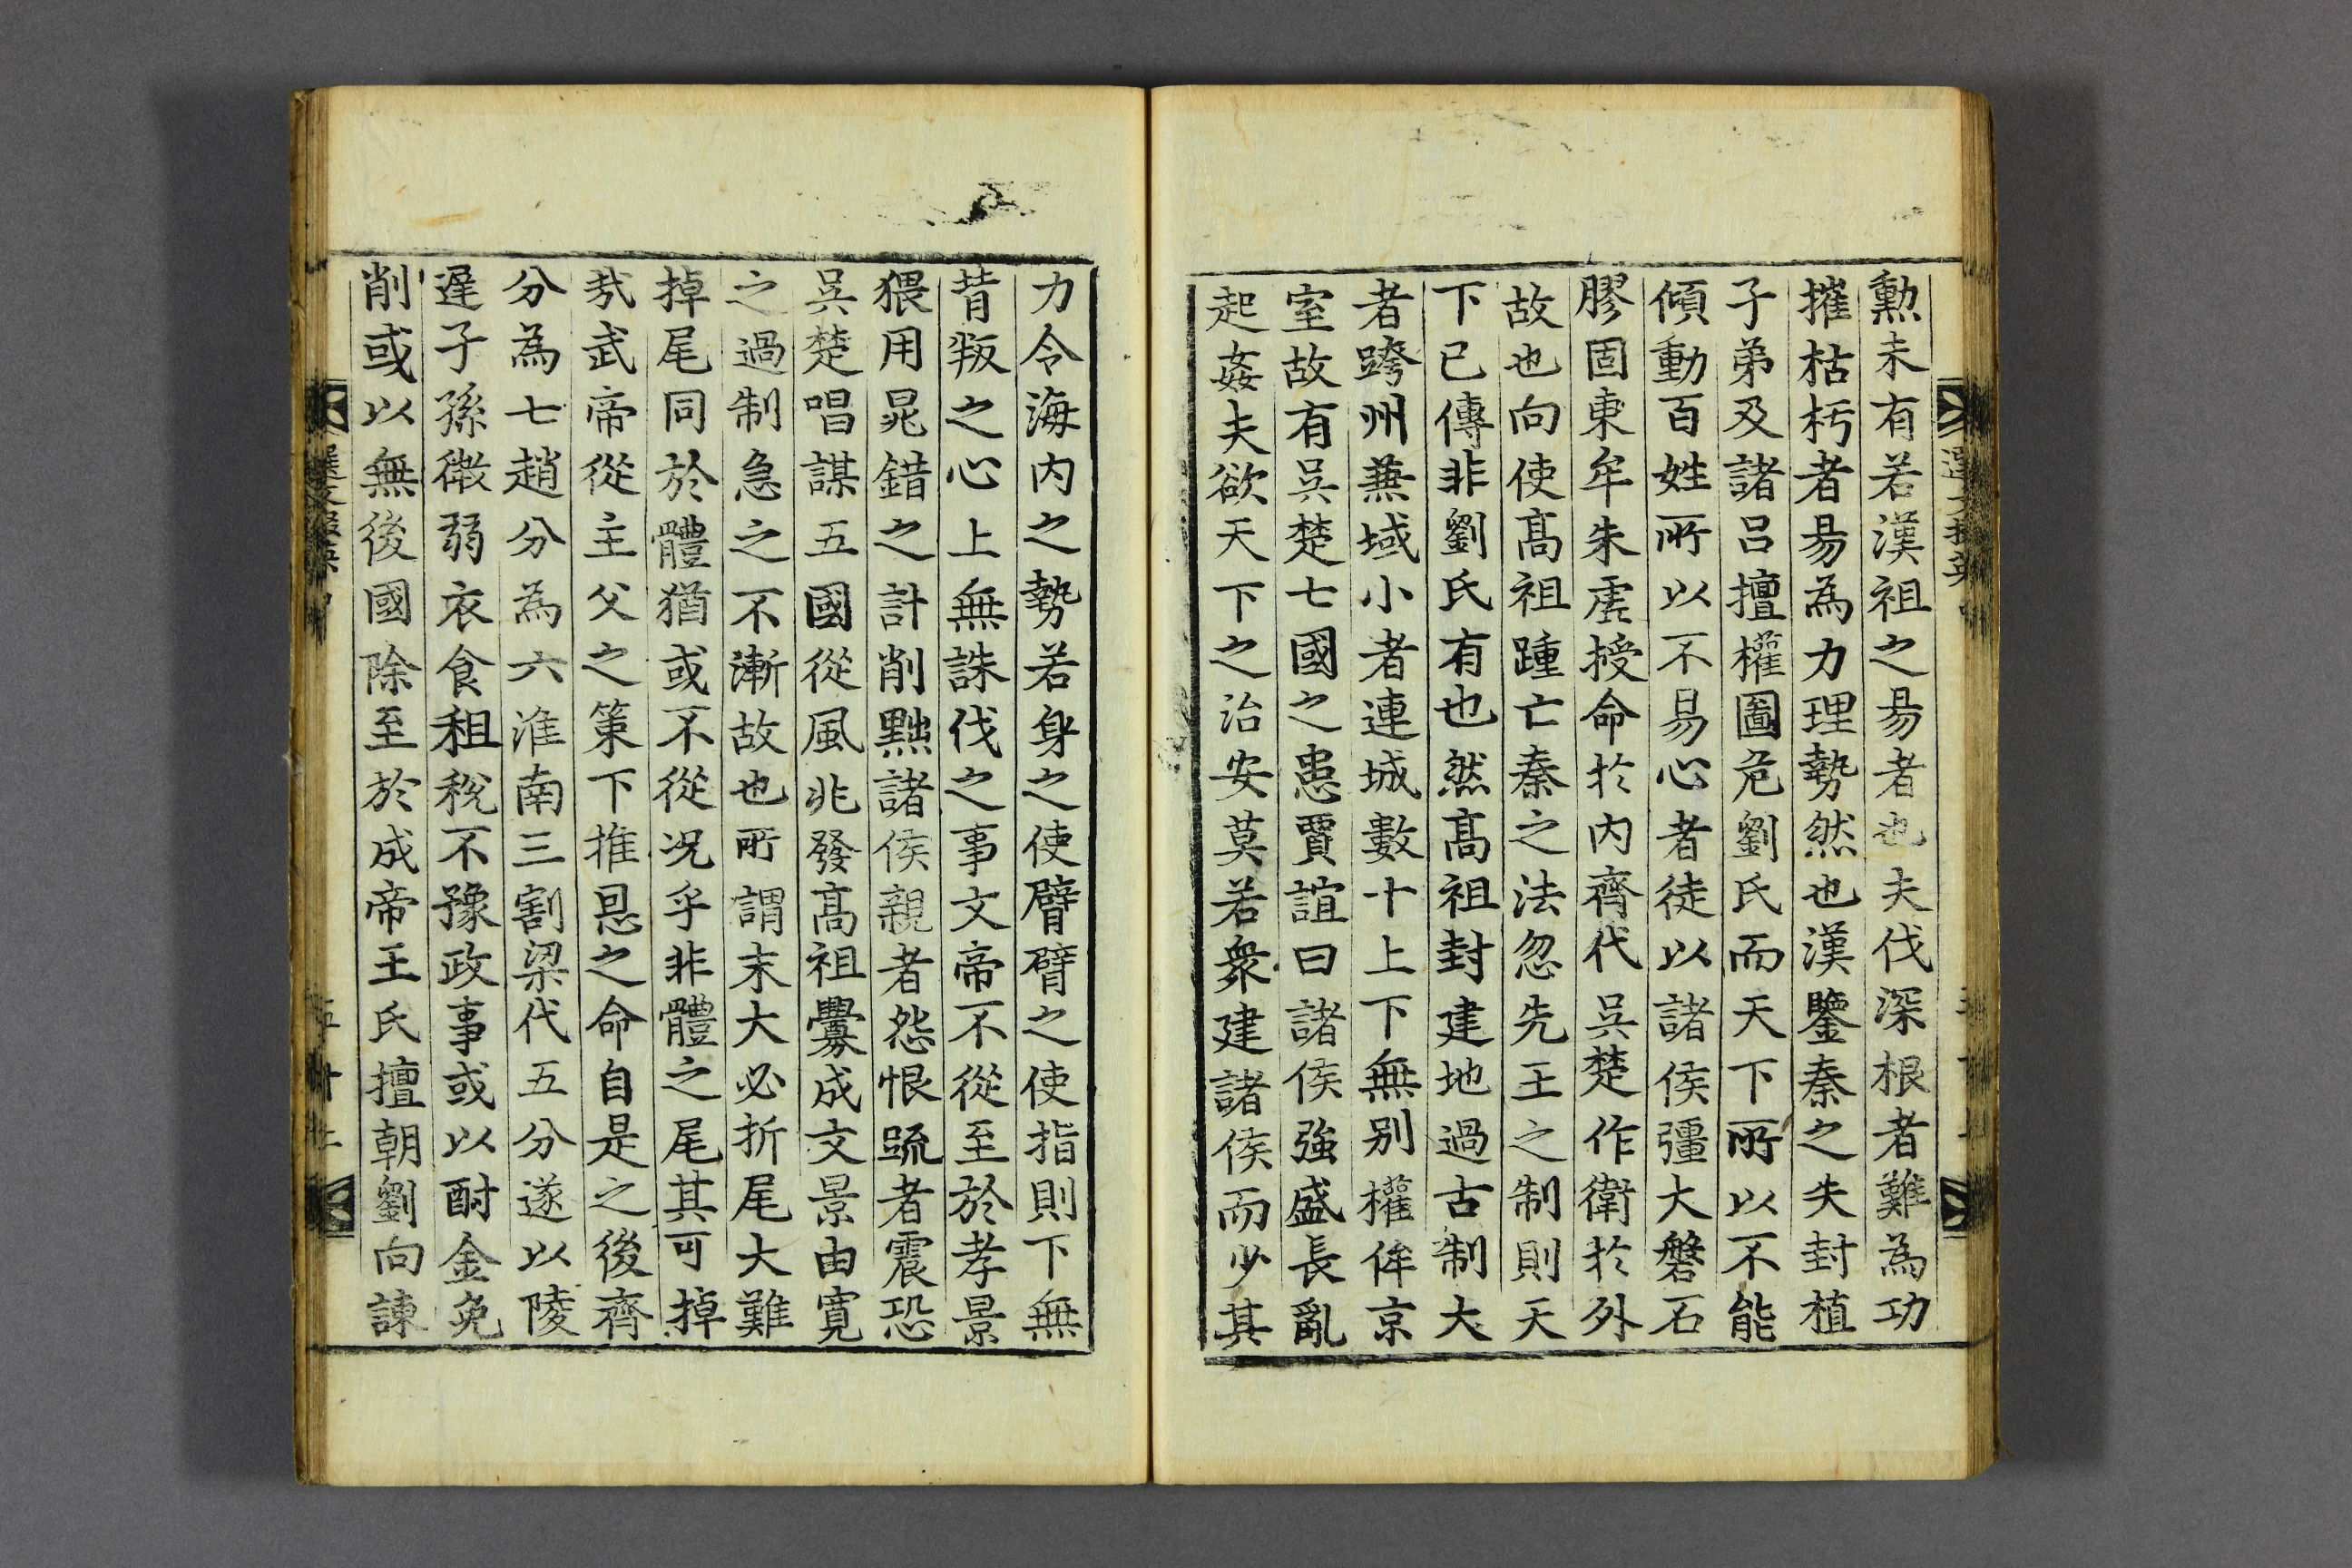 勲未有若漢祖之易者也夫伐深根者難為功
摧枯朽者易為力理勢然也漢鑒秦之失封植
子弟及諸呂擅權圖危劉氏而天下所以不能
傾動百姓所以不易心者徒以諸侯彊大磐石
膠固東牟朱虛授命於内齊代吳楚作衛於外
故也向使髙祖踵亡秦之法忽先王之制則天
下已傳非劉氏有也然髙祖封建地過古制大
者跨州兼域小者連城數十上下無别權侔京
室故有吳楚七國之患賈誼曰諸侯強盛長亂
起姦夫欲天下之治安莫若衆建諸侯而少其
力令海内之勢若身之使臂臂之使指則下無
背叛之心上無誅伐之事文帝不從至於孝景
猥用晁錯之計削黜諸侯親者怨恨踈者震恐
吳楚唱謀五國從風兆發髙祖釁成文景由寛
之過制急之不漸故也所謂末大必折尾大難
掉尾同於體猶或不從况乎非體之尾其可掉
哉武帝從主父之策下推恩之命自是之後齊
分為七趙分為六淮南三割梁代五分遂以陵
遲子孫微弱衣食租稅不豫政事或以酎金免
削或以無後國除至於成帝王氏擅朝劉向諫